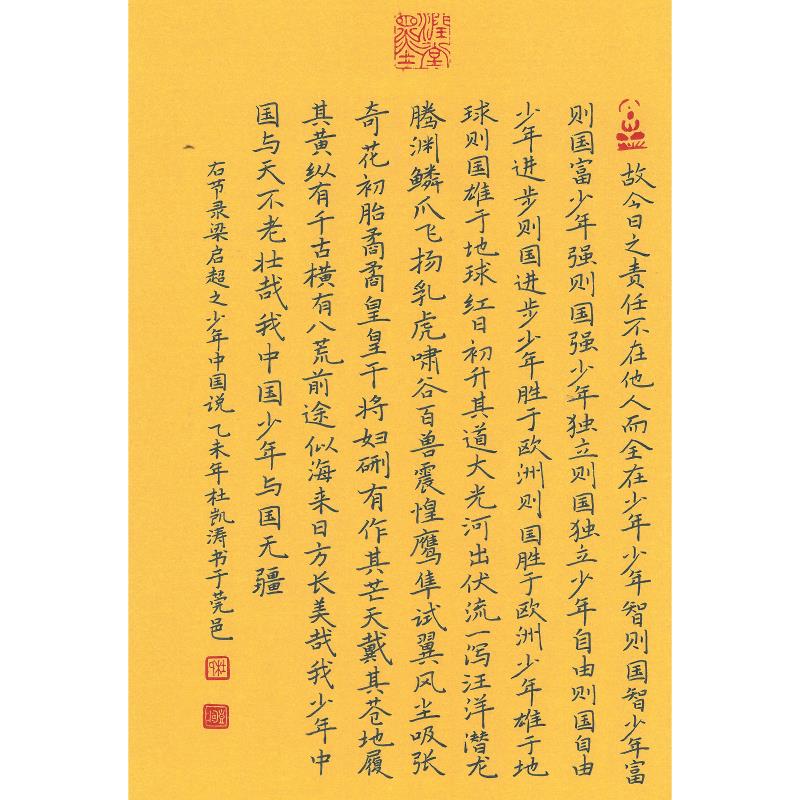 故今日之责任不在他人而全在少年少年智则国智少年富
则国富少年强则国强少年独立则国独立少年自由则国自由
少年进步则国进步少年胜于欧洲则国胜于欧洲少年雄于地
球则国雄于地球红日初升其道大光河出伏流一泻汪洋潜龙
腾渊鳞爪飞扬乳虎啸谷百兽震惶鹰隼试翼风尘吸张
奇花初胎矞矞皇皇干将妇硎有作其芒天戴其苍地履
其黄纵有千古横有八荒前途似海来日方长美哉我少年中
国与天不老壮哉我中国少年与国无疆
右节录梁启超之少年中国说乙未年杜凯涛书于莞邑